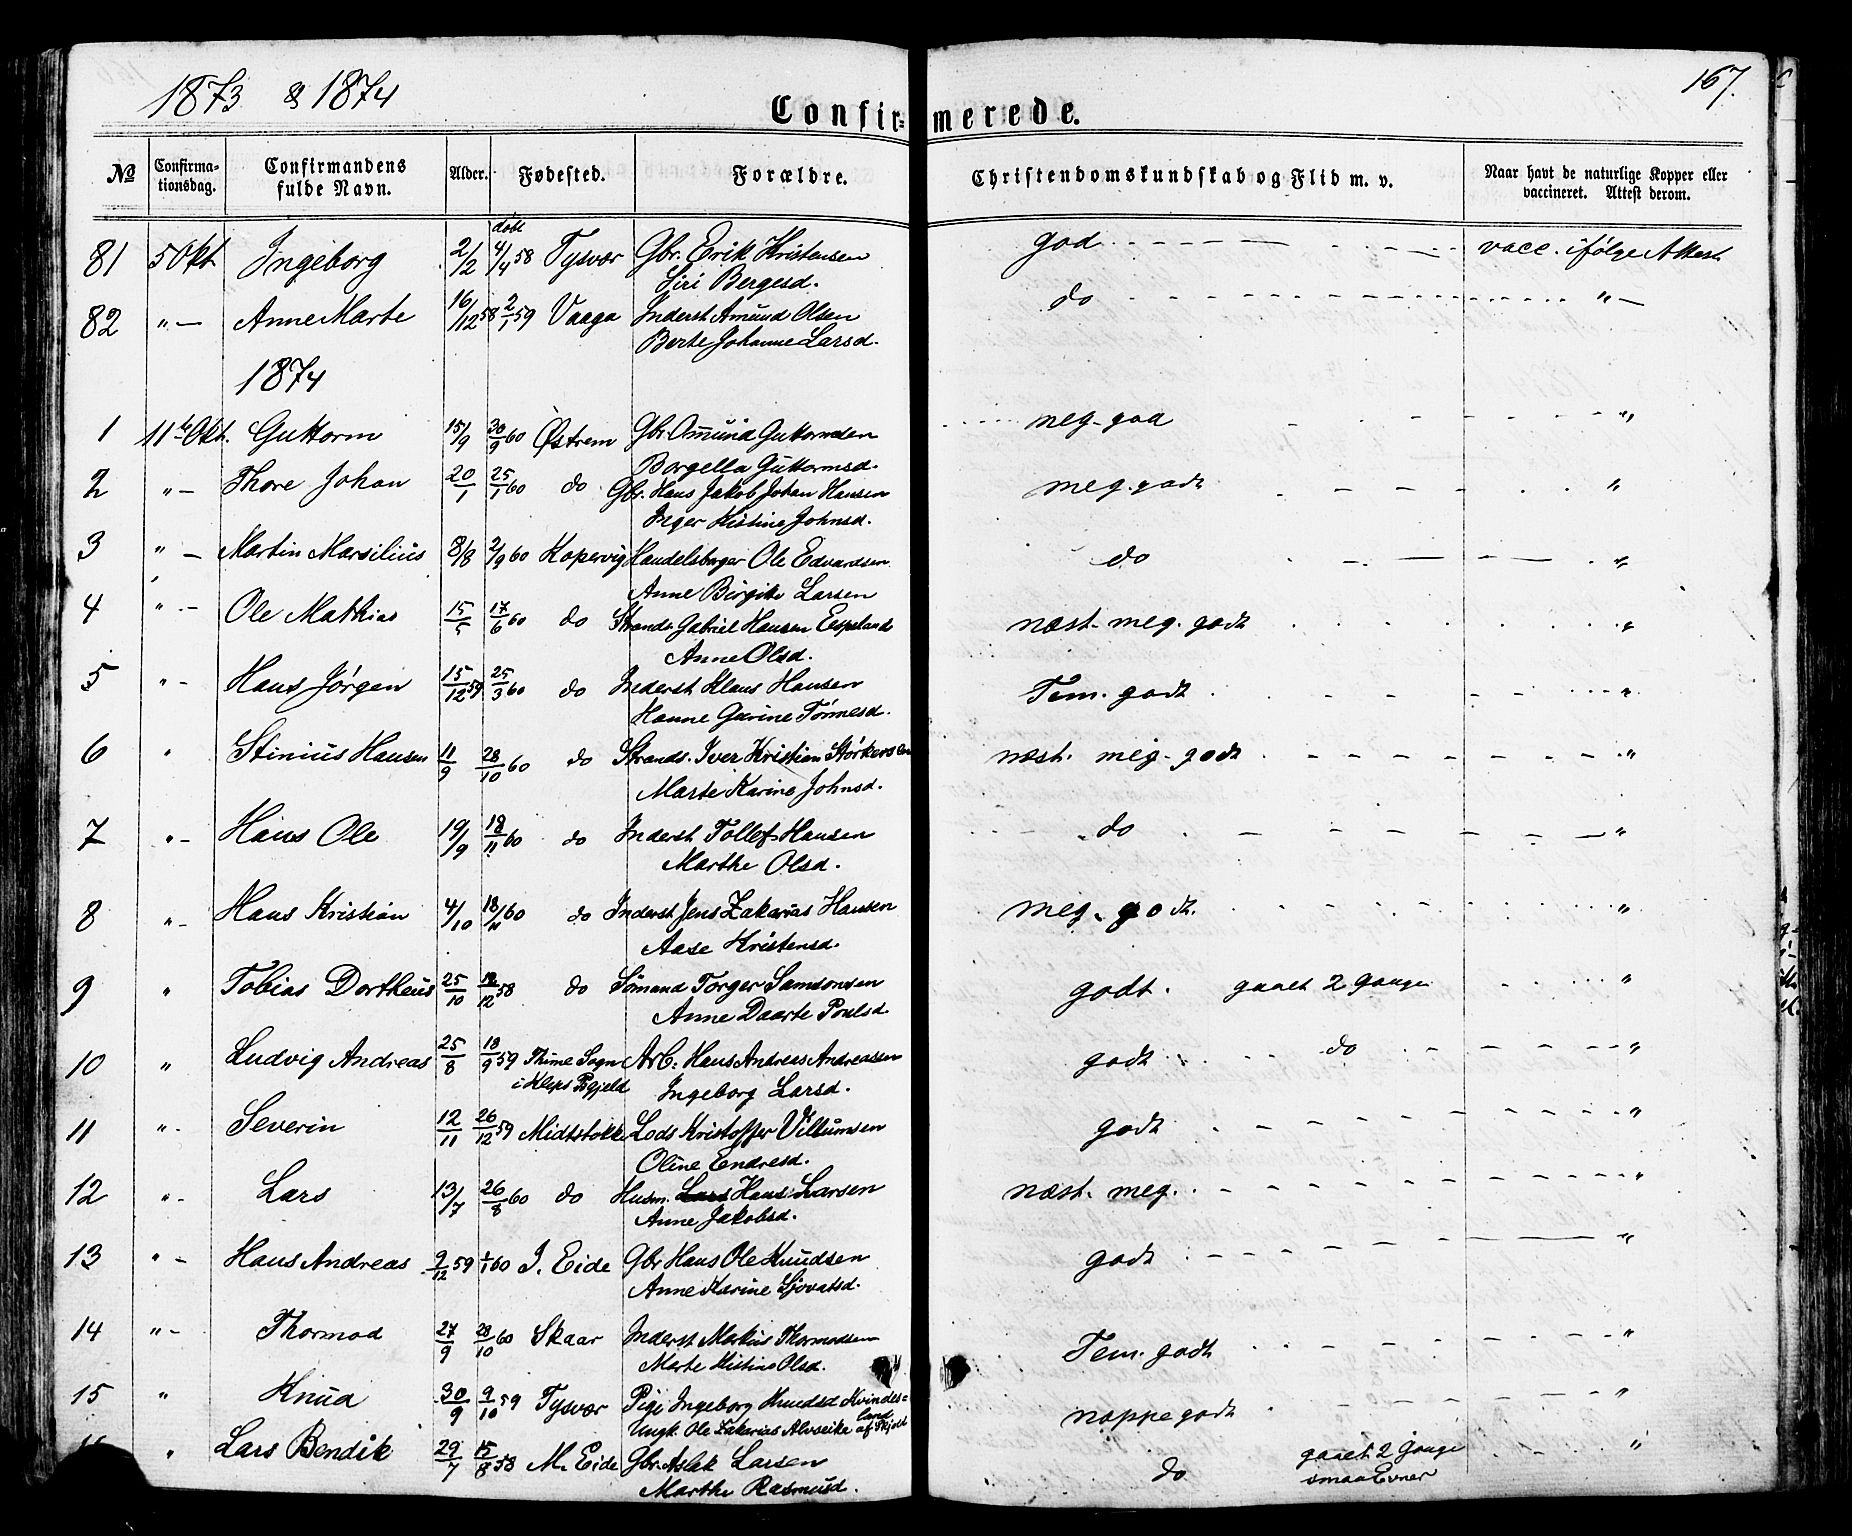 1873 & 1874
167.
Confirmerede.
No Confirmationsdag. Confirmandens fulde Navn. Alder. Fødested. Forældre. Christendomskundskab og Flid m. v. Naar havt de naturlige Kopper eller vaccineret. Attest derom.
døbt
81 5 Okt Ingeborg 2/2 4/4 58 Tysvær Gbr. Erik Kristensen god vacc. ifølge Attest
Siri Bergesd.
82 " — Anne Marte 16/12 58 2/1 59 Vaaga Inderst Amund Olsen do " —
Berte Johanne Larsd.
1874
1 11te Okt. Guttorm 15/9 30/9 60 Østrem Gbr. Amund Guttormsen meg. god "
Borgella Guttormsd.
2 " — Thore Johan 20/1 25/1 60 do Gbr. Hans Jakob Johan Hansen meg. godt "
Inger Kistine Johnsd.
3 " — Martin Marsilius 8/8 2/9 60 Kopervig Handelsborger Ole Edvardsen do "
Anne Birgite Larsen
4 " — Ole Mathias 15/5 17/6 60 do Strands. Gabriel Hansen Espeland næst. meg. godt "
Anne Olsd.
5 " — Hans Jørgen 15/12 59 25/3 60 do Inderst Klaus Hansen Tem. godt "
Hanne Gurine Tønnesd.
6 " Stinius Hansen 11/9 28/10 60 do Strands. Iver Kristian Størkersen næst. meg. godt "
Marte Karine Johnsd.
7 " — Hans Ole 19/9 18/11 60 do Inderst Tollef Hansen do "
Marthe Olsd.
8 " — Hans Kristian 4/10 18/11 60 do Inderst Jens Zakarias Hansen meg. godt. "
Aase Kristensd.
9 " Tobias Dortheus 25/10 12/12 58 do Sømand Torger Samsonsen godt. gaaet 2 Gange "
Anne Daarte Poulsd.
10 " Ludvig Andreas 25/8 18/9 59 Thime Sogn Arb. Hans Andreas Andreassen godt do "
i Kleps Pgjeld Ingeborg Larsd.
11 " — Severin 12/11 26/12 59 Midtstokke Lods Kristoffer Villumsen godt "
Oline Endresd.
12 " — Lars 13/7 26/8 60 do Husm. Lars Hans Larsen næst. meg. "
Anne Jakobsd.
13 " — Hans Andreas 9/12 59 1/1 60 I. Eide Gbr Hans Ole Knudsen godt "
Anne Karine Sjovatsd.
14 " — Thormod 27/9 28/10 60 Skaar Inderst Markus Thormodsen Tem. godt "
Marte Kistine Olsd.
15 " Knud 30/9 9/10 59 Tysvær Pige Ingeborg Knudsd Kvindesland noppe godt "
Ungk. Ole Zakarias Alvseike af Skjold
" Lars Bendik 29/7 15/8 58 M. Eide Gbr. Aslak Larsen do gaaet 2 Gange "
Marthe Rasmusd. smaa Evner